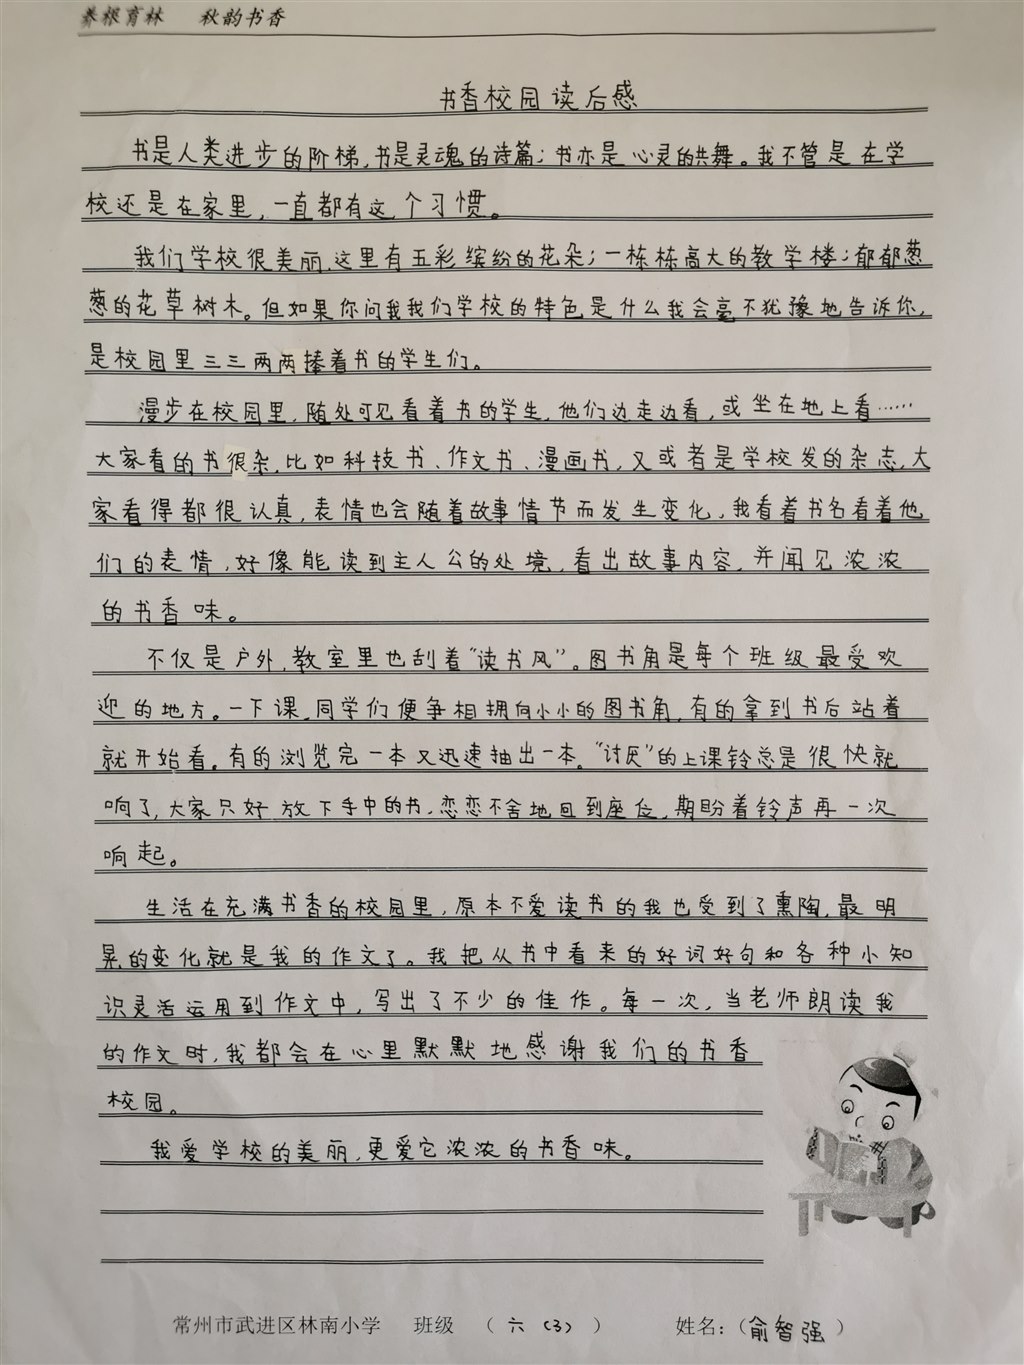 养根育林 秋韵书香
书香校园读后感
书是人类进步的阶梯,书是灵魂的诗篇;书亦是心灵的共舞。我不管是在学
校还是在家里,一直都有这个习惯。
我们学校很美丽,这里有五彩缤纷的花朵;一栋栋高大的教学楼;郁郁葱
葱的花草树木。但如果你问我我们学校的特色是什么我会毫不犹豫地告诉你,
是校园里三三两两捧着书的学生们。
漫步在校园里,随处可见看着书的学生,他们边走边看,或坐在地上看……
大家看的书很杂,比如科技书、作文书、漫画书,又或者是学校发的杂志,大
家看得都很认真,表情也会随着故事情节而发生变化,我看着书名看着他
们的表情,好像能读到主人公的处境,看出故事内容,并闻见浓浓
的书香味。
不仅是户外,教室里也刮着“读书风”。图书角是每个班级最受欢
迎的地方。一下课,同学们便争相拥向小小的图书角,有的拿到书后站着
就开始看。有的浏览完一本又迅速抽出一本。“讨厌”的上课铃总是很快就
响了,大家只好放下手中的书,恋恋不舍地回到座位,期盼着铃声再一次
响起。
生活在充满书香的校园里,原本不爱读书的我也受到了熏陶,最明
晃的变化就是我的作文了。我把从书中看来的好词好句和各种小知
识灵活运用到作文中,写出了不少的佳作。每一次,当老师朗读我
的作文时,我都会在心里默默地感谢我们的书香
校园。
我爱学校的美丽,更爱它浓浓的书香味。
常州市武进区林南小学 班级 (六(3)) 姓名:(俞智强)